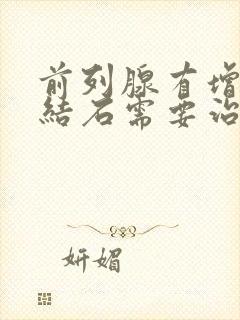 前列腺有增
結石需要治
妍媚